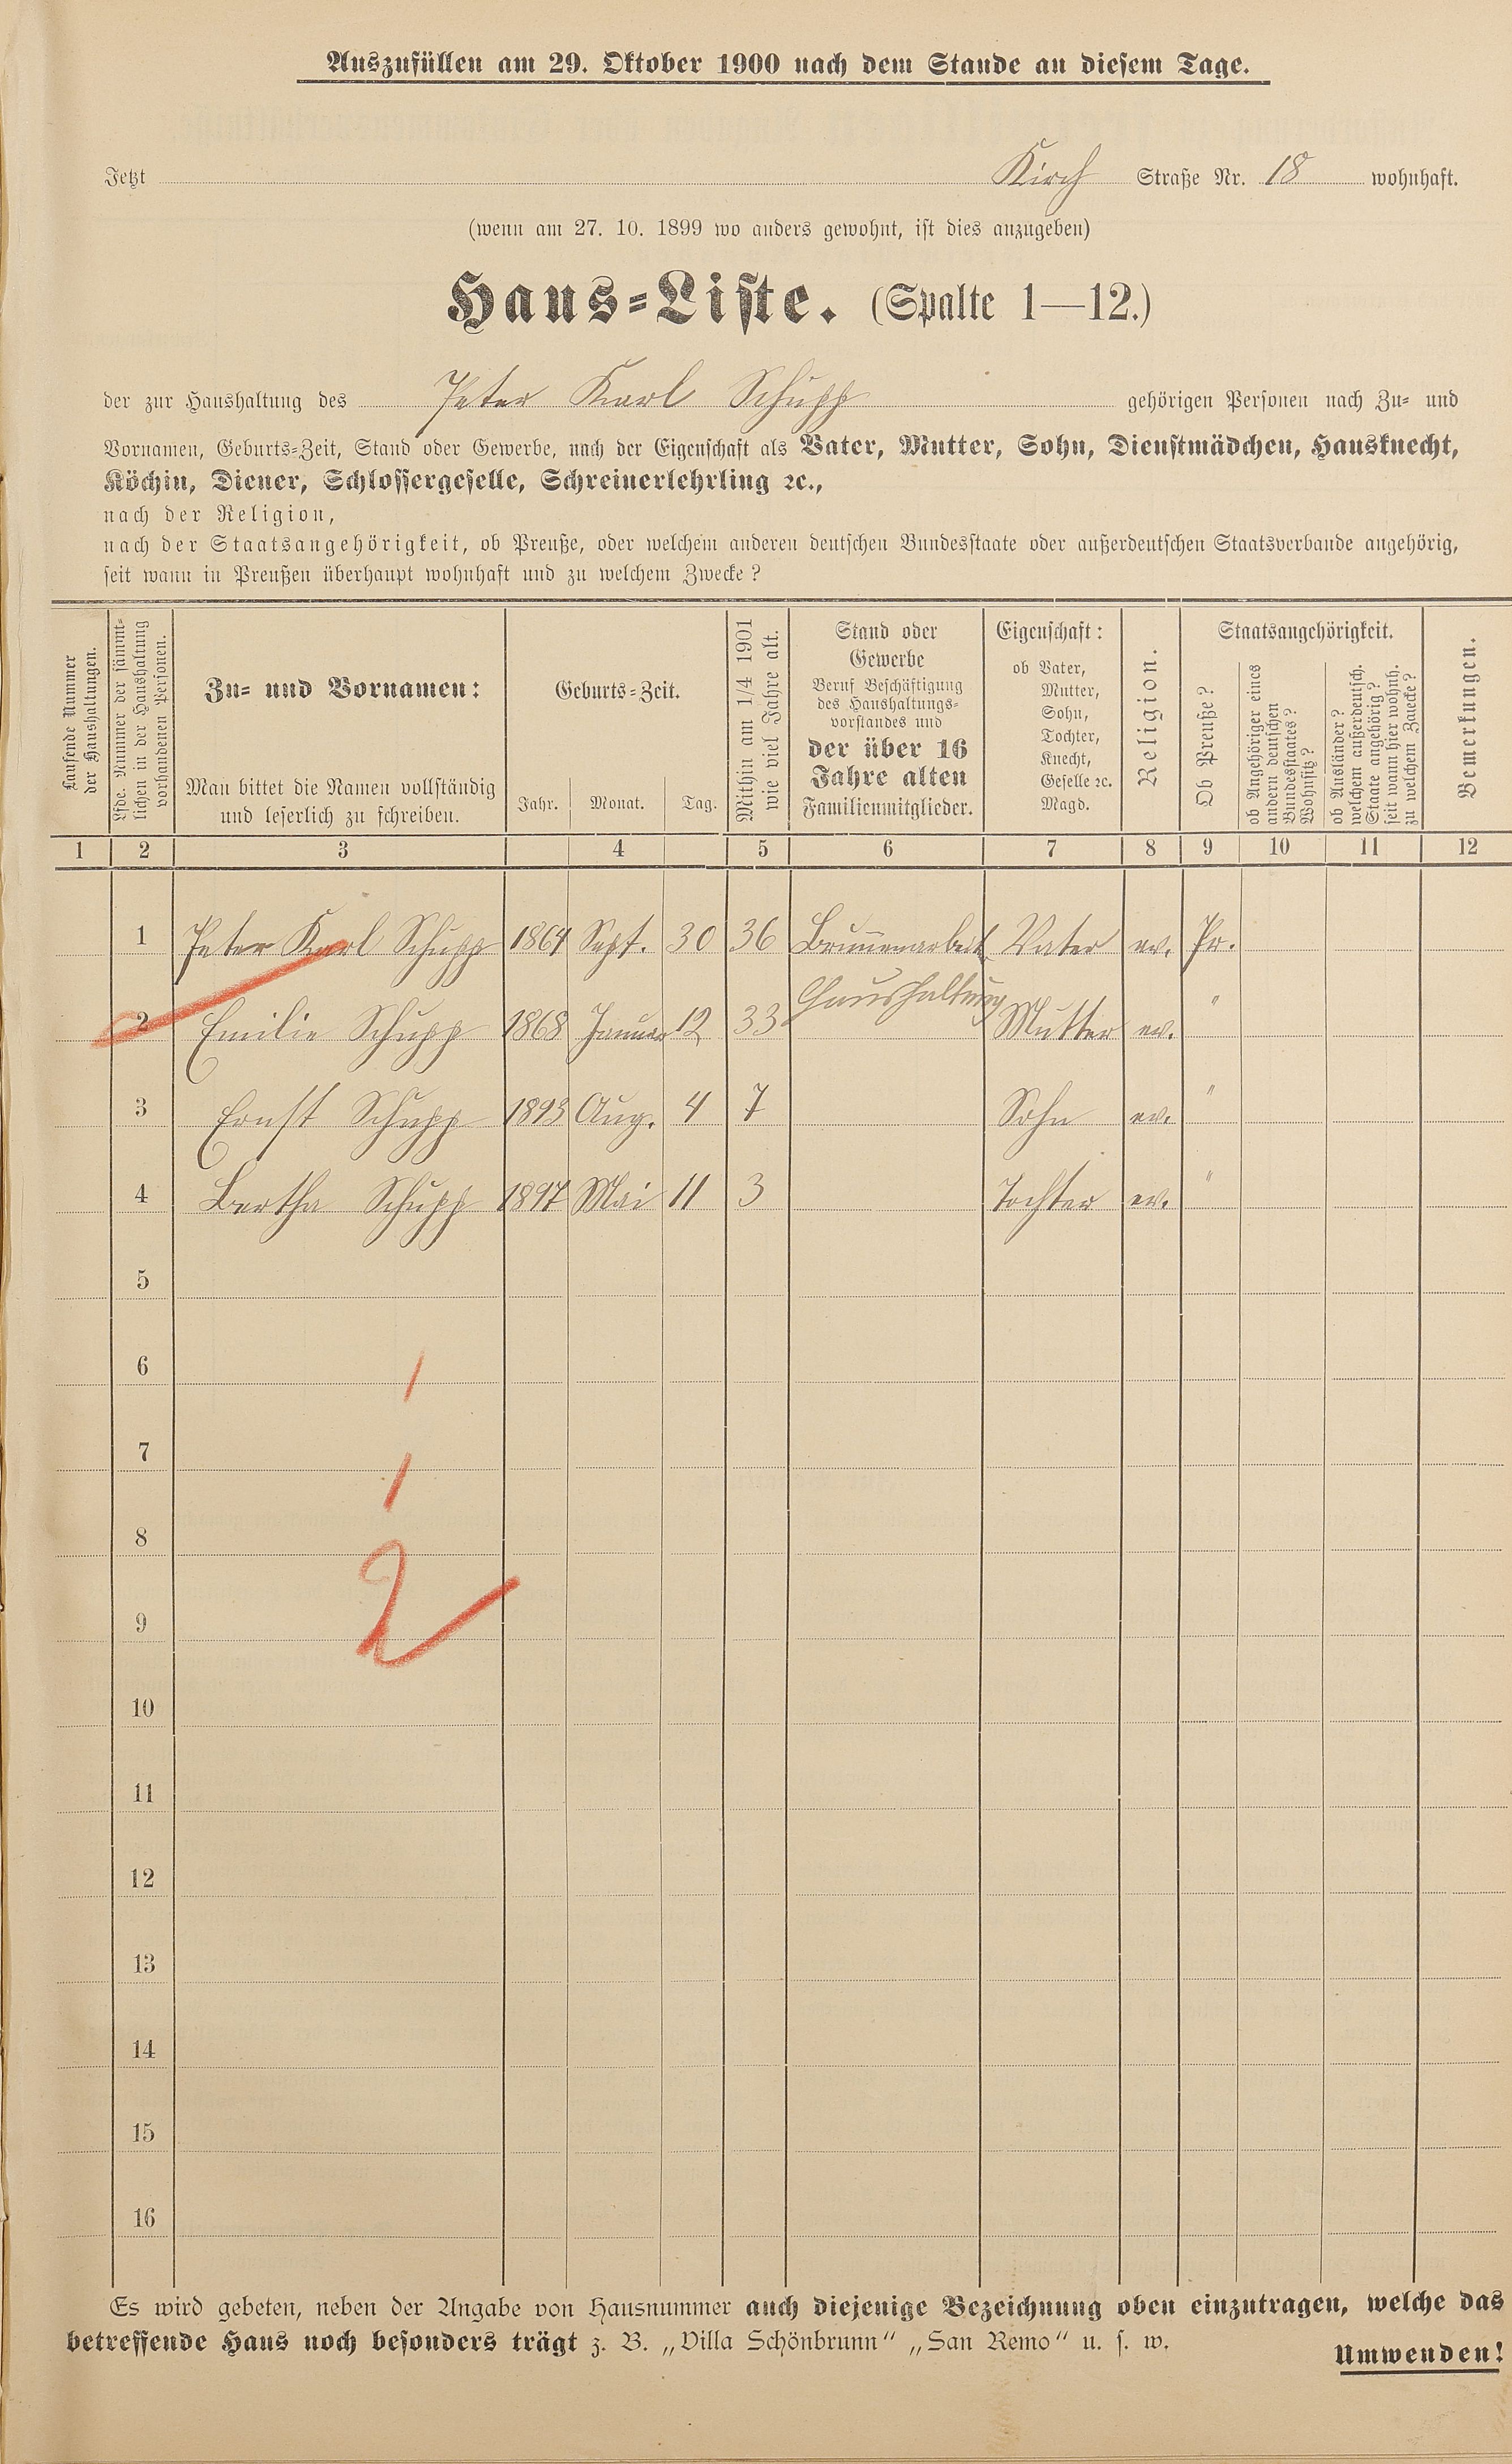 Auszufüllen am 29. Oktober 1900 nach dem Stande an diesem Tage.
Jetzt Kirch Straße Nr. 18 wohnhaft.
(wenn am 27. 10. 1899 wo anders gewohnt, ist dies anzugeben)
Haus-Liste. (Spalte 1—12.)
der zur Haushaltung des Peter Karl Schupp gehörigen Personen nach Zu- und
Vornamen, Geburts-Zeit, Stand oder Gewerbe, nach der Eigenschaft als Vater, Mutter, Sohn, Dienstmädchen, Hausknecht,
Köchin, Diener, Schlossergeselle, Schreinerlehrling ꝛc.,
nach der Religion,
nach der Staatsangehörigkeit, ob Preuße, oder welchem anderen deutschen Bundesstaate oder außerdeutschen Staatsverbande angehörig,
seit wann in Preußen überhaupt wohnhaft und zu welchem Zwecke?
Laufende Nummer
der Haushaltungen.
Lfde. Nummer der sämmt-
lichen in der Haushaltung
vorhandenen Personen.
Zu- und Vornamen:
Man bittet die Namen vollständig
und leserlich zu schreiben.
Geburts-Zeit.
Jahr. Monat. Tag.
Mithin am 1/4 1901
wie viel Jahre alt.
Stand oder
Gewerbe
Beruf Beschäftigung
des Haushaltungs-
vorstandes und
der über 16
Jahre alten
Familienmitglieder.
Eigenschaft:
ob Vater,
Mutter,
Sohn,
Tochter,
Knecht,
Geselle ꝛc.
Magd.
Religion.
Staatsangehörigkeit.
Ob Preuße?
ob Angehöriger eines
andern deutschen
Bundesstaates?
Wohnsitz?
ob Ausländer?
welchem außerdeutsch.
Staate angehörig?
seit wann hier wohnh.
zu welchem Zwecke?
Bemerkungen.
1 2 3 4 5 6 7 8 9 10 11 12
1 Peter Karl Schupp 1864 Sept. 30 36 Brunnenarbeit. Vater ev. Pr.
2 Emilie Schupp 1868 Januar 12 33 Haushaltung Mutter ev. "
3 Ernst Schupp 1893 Aug. 4 7 Sohn ev. "
4 Bertha Schupp 1897 Mai 11 3 Tochter ev. "
5
6 1
7 1
8
9 2
10
11
12
13
14
15
16
Es wird gebeten, neben der Angabe von Hausnummer auch diejenige Bezeichnung oben einzutragen, welche das
betreffende Haus noch besonders trägt z. B. „Villa Schönbrunn" „San Remo" u. s. w.
Umwenden!